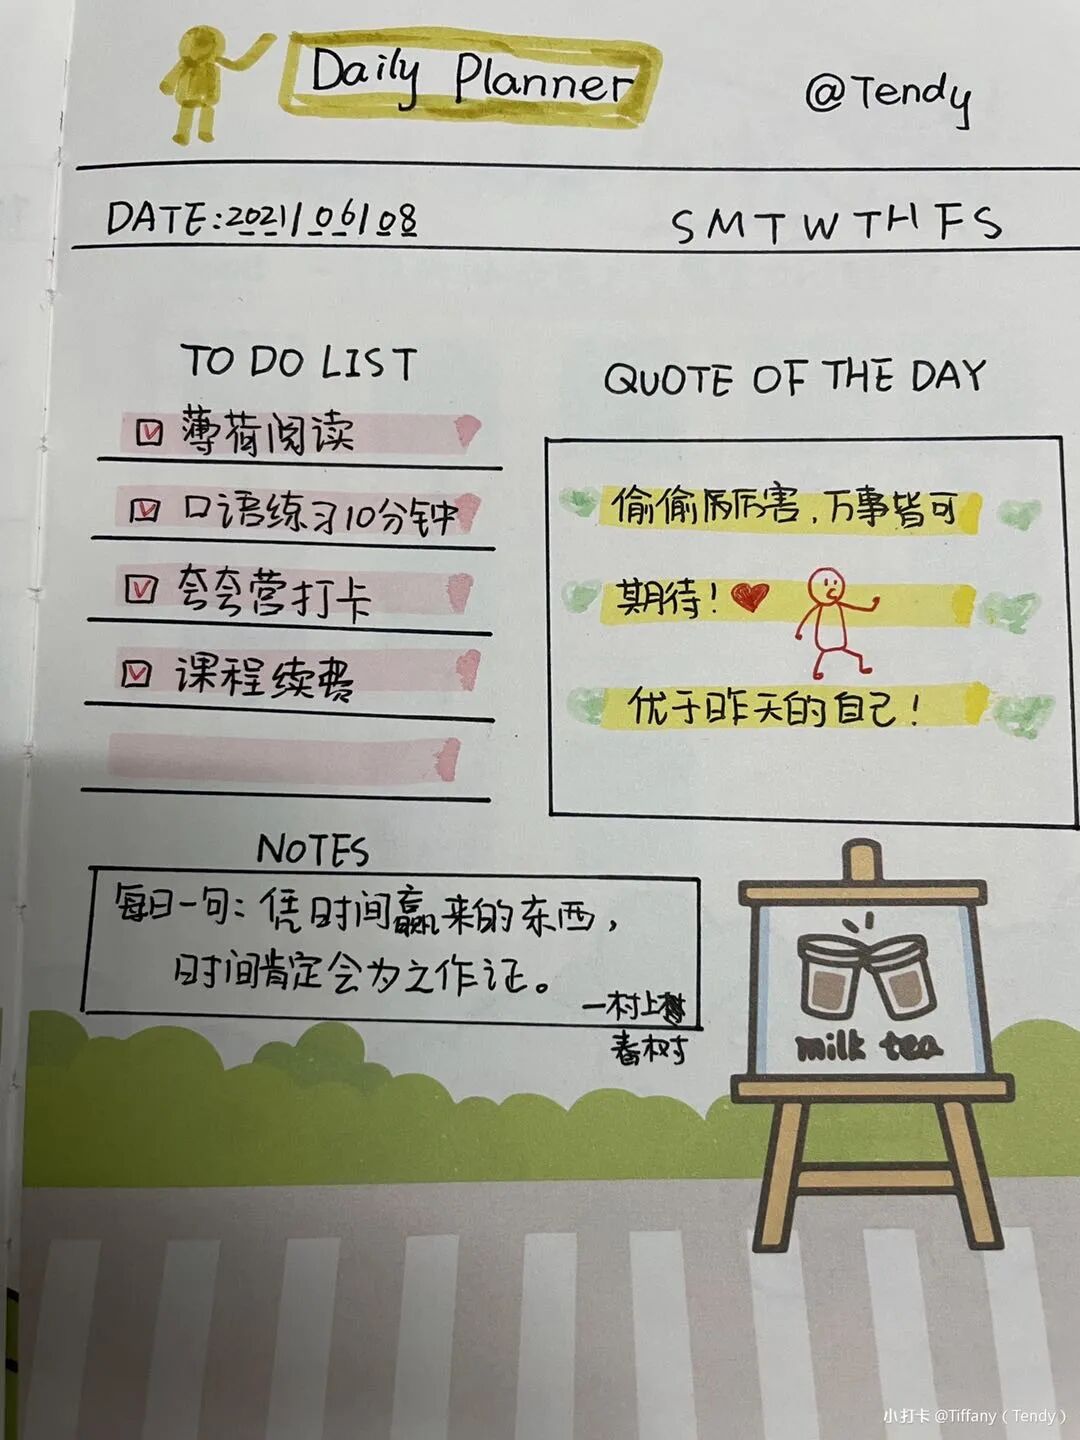 Daily Planner
@Tendy
DATE:2021/06/08
S M T W TH F S
TO DO LIST
薄荷阅读
口语练习10分钟
夸夸营打卡
课程续费
QUOTE OF THE DAY
偷偷厉厉害,万事皆可
期待!
优于昨天的自己!
NOTES
每日一句:凭时间赢来的东西,
时间肯定会为之作证。
一村上
春树
milk tea
小打卡 @Tiffany(Tendy)